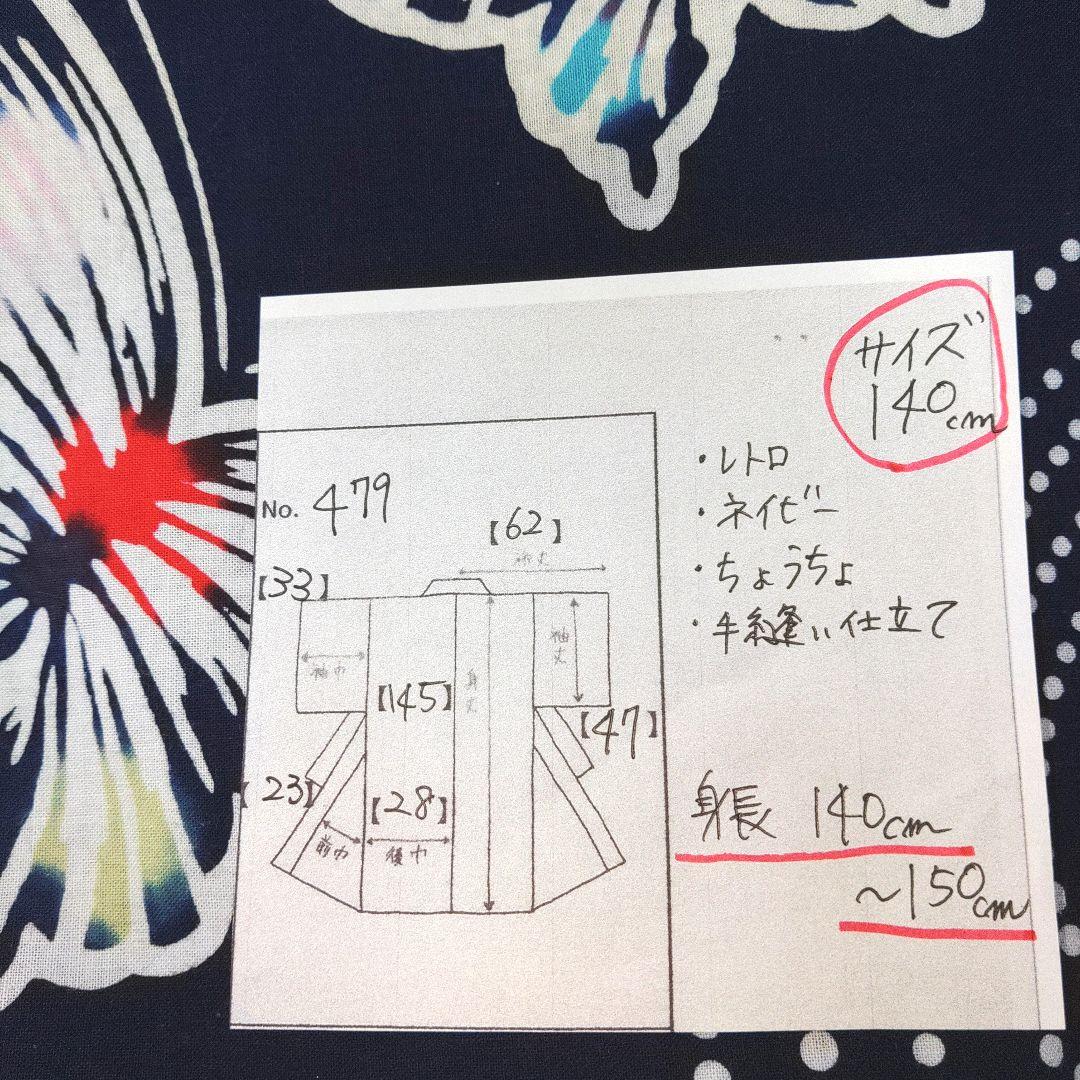 サイズ
140cm
・レトロ
・ネイビー
・ちょうちょ
・手縫い仕立て
身長 140cm
～150cm
No. 479
【62】
裄丈
【33】
袖巾
袖丈
身丈
【145】
【47】
【23】
【28】
前巾
後巾